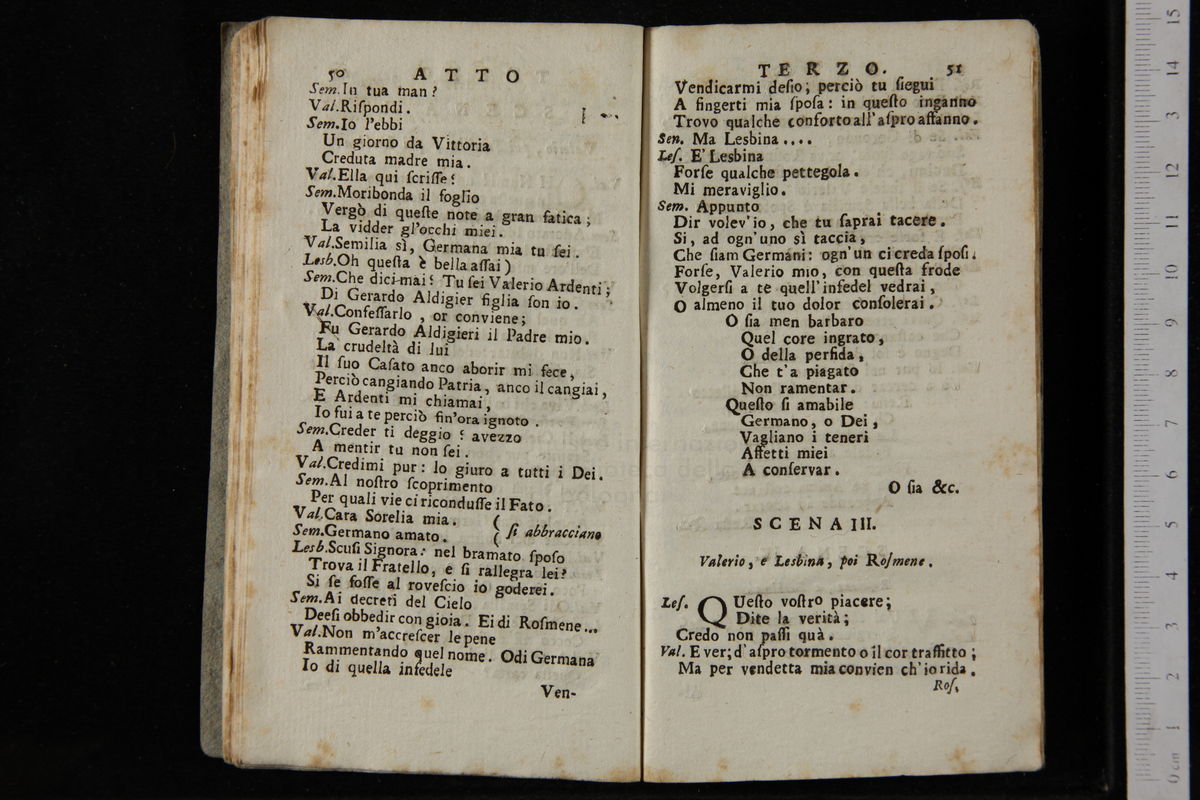 50 ATTO
Sem. In tua man?
Val. Riſpondi.
Sem. Io l'ebbi
Un giorno da Vittoria
Creduta madre mia.
Val. Ella qui ſcriſſe?
Sem. Moribonda il foglio
Vergò di queſte note a gran fatica;
La vidder gl'occhi miei.
Val. Semilia sì, Germana mia tu ſei.
Lesb. Oh queſta è bella aſſai)
Sem. Che dici mai? Tu ſei Valerio Ardenti;
Di Gerardo Aldigier figlia ſon io.
Val. Confeſſarlo, or conviene;
Fu Gerardo Aldigieri il Padre mio.
La crudeltà di lui
Il ſuo Caſato anco aborir mi fece,
Perciò cangiando Patria, anco il cangiai,
E Ardenti mi chiamai,
Io fui a te perciò fin'ora ignoto.
Sem. Creder ti deggio? avezzo
A mentir tu non ſei.
Val. Credimi pur: lo giuro a tutti i Dei.
Sem. Al noſtro ſcoprimento
Per quali vie ci riconduſſe il Fato.
Val. Cara Sorelia mia. (
Sem. Germano amato. ( ſi abbracciano
Lesb. Scuſi Signora: nel bramato ſpoſo
Trova il Fratello, e ſi rallegra lei?
Si ſe foſſe al roveſcio io goderei.
Sem. Ai decreti del Cielo
Deeſi obbedir con gioia. Ei di Roſmene...
Val. Non m'accreſcer le pene
Rammentando quel nome. Odi Germana
Io di quella infedele
Ven-
TERZO. 51
Vendicarmi deſio; perciò tu ſiegui
A fingerti mia ſpoſa: in queſto inganno
Trovo qualche conforto all'aſpro affanno.
Sen. Ma Lesbina....
Leſ. E' Lesbina
Forſe qualche pettegola.
Mi meraviglio.
Sem. Appunto
Dir volev'io, che tu ſaprai tacere.
Si, ad ogn'uno sì taccia,
Che ſiam Germani: ogn'un ci creda ſpoſi.
Forſe, Valerio mio, con queſta frode
Volgerſi a te quell'infedel vedrai,
O almeno il tuo dolor conſolerai.
O ſia men barbaro
Quel core ingrato,
O della perfida,
Che t'a piagato
Non ramentar.
Queſto ſi amabile
Germano, o Dei,
Vagliano i teneri
Affetti miei
A conſervar.
O ſia &c.
SCENA III.
Valerio, e Lesbina, poi Roſmene.
Leſ. QUeſto voſtro piacere;
Dite la verità;
Credo non paſſi quà.
Val. E ver; d'aſpro tormento o il cor traffitto;
Ma per vendetta mia convien ch'io rida.
Roſ.